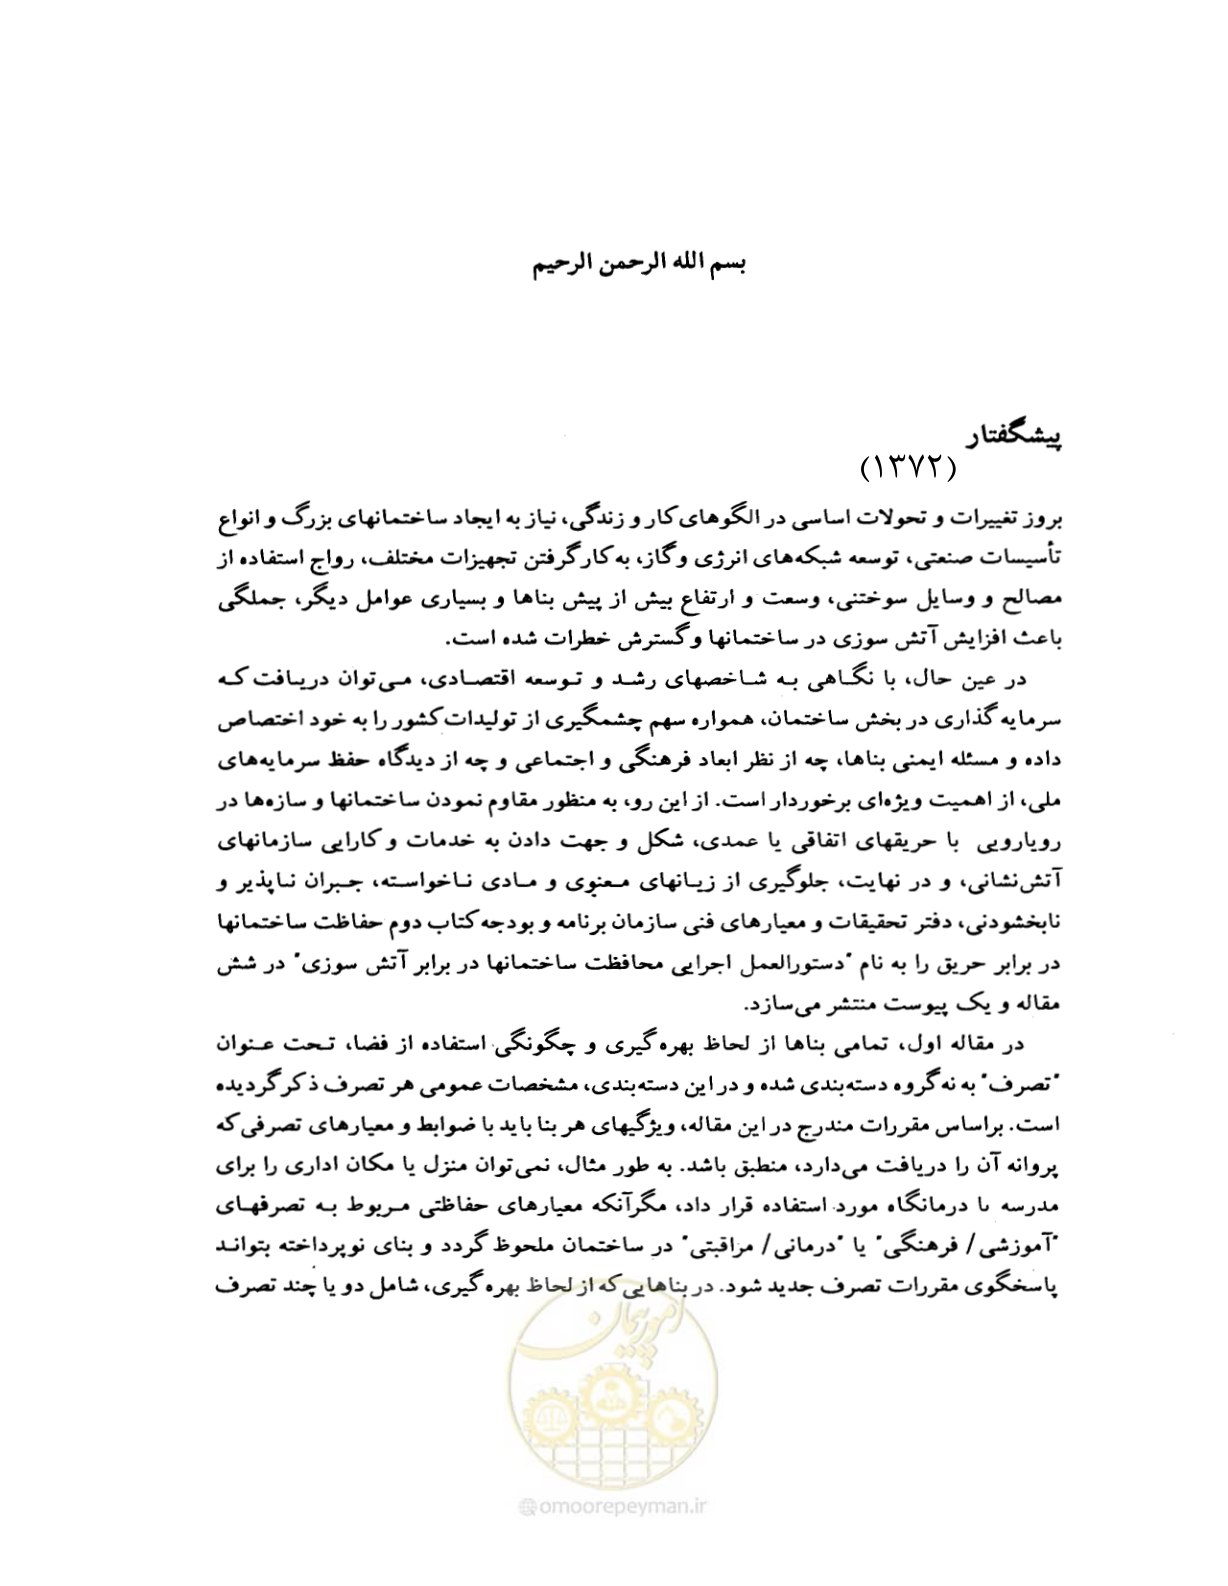 بسم الله الرحمن الرحیم
پیشگفتار
(۱۳۷۲)
بروز تغییرات و تحولات اساسی در الگوهای کار و زندگی، نیاز به ایجاد ساختمانهای بزرگ و انواع
تأسیسات صنعتی، توسعه شبکه‌های انرژی و گاز، به کار گرفتن تجهیزات مختلف، رواج استفاده از
مصالح و وسایل سوختنی، وسعت و ارتفاع بیش از پیش بناها و بسیاری عوامل دیگر، جملگی
باعث افزایش آتش سوزی در ساختمانها و گسترش خطرات شده است.
در عین حال، با نگاهی به شاخصهای رشد و توسعه اقتصادی، می‌توان دریافت که
سرمایه گذاری در بخش ساختمان، همواره سهم چشمگیری از تولیدات کشور را به خود اختصاص
داده و مسئله ایمنی بناها، چه از نظر ابعاد فرهنگی و اجتماعی و چه از دیدگاه حفظ سرمایه‌های
ملی، از اهمیت ویژه‌ای برخوردار است. از این رو، به منظور مقاوم نمودن ساختمانها و سازه‌ها در
رویارویی با حریقهای اتفاقی یا عمدی، شکل و جهت دادن به خدمات و کارایی سازمانهای
آتش‌نشانی، و در نهایت، جلوگیری از زیانهای معنوی و مادی ناخواسته، جبران ناپذیر و
نابخشودنی، دفتر تحقیقات و معیارهای فنی سازمان برنامه و بودجه کتاب دوم حفاظت ساختمانها
در برابر حریق را به نام "دستورالعمل اجرایی محافظت ساختمانها در برابر آتش سوزی" در شش
مقاله و یک پیوست منتشر می‌سازد.
در مقاله اول، تمامی بناها از لحاظ بهره گیری و چگونگی استفاده از فضا، تحت عنوان
"تصرف" به نه گروه دسته‌بندی شده و در این دسته‌بندی، مشخصات عمومی هر تصرف ذکر گردیده
است. براساس مقررات مندرج در این مقاله، ویژگیهای هر بنا باید با ضوابط و معیارهای تصرفی که
پروانه آن را دریافت می‌دارد، منطبق باشد. به طور مثال، نمی‌توان منزل یا مکان اداری را برای
مدرسه یا درمانگاه مورد استفاده قرار داد، مگر آنکه معیارهای حفاظتی مربوط به تصرفهای
"آموزشی/ فرهنگی" یا "درمانی/ مراقبتی" در ساختمان ملحوظ گردد و بنای نوپرداخته بتواند
پاسخگوی مقررات تصرف جدید شود. در بناهایی که از لحاظ بهره گیری، شامل دو یا چند تصرف
امور پیمان
omoorepeyman.ir